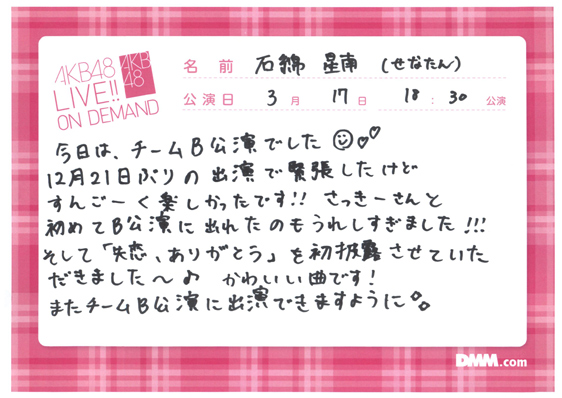 AKB48
LIVE!!
ON DEMAND
AKB
48
名前 石綿 星南 (せなたん)
公演日 3月 17日 18:30 公演
今日は、チームB公演でした
12月21日ぶりの出演で緊張したけど
すんごーく楽しかったです!! さっきーさんと
初めてB公演に出れたのもうれしすぎました!!!
そして「失恋、ありがとう」を初披露させていた
だきました〜♪ かわいい曲です!
またチームB公演に出演できますように
DMM.com